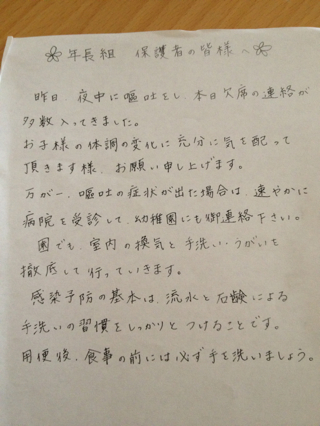 年長組 保護者の皆様へ
昨日、夜中に嘔吐をし、本日欠席の連絡が
多数入ってきました。
お子様の体調の変化に充分に気を配って
頂きます様、お願い申し上げます。
万が一、嘔吐の症状が出た場合は、速やかに
病院を受診して、幼稚園にも御連絡下さい。
園でも、室内の換気と手洗い・うがいを
徹底して行っていきます。
感染予防の基本は、流水と石鹸による
手洗いの習慣をしっかりとつけることです。
用便後、食事の前には必ず手を洗いましょう。